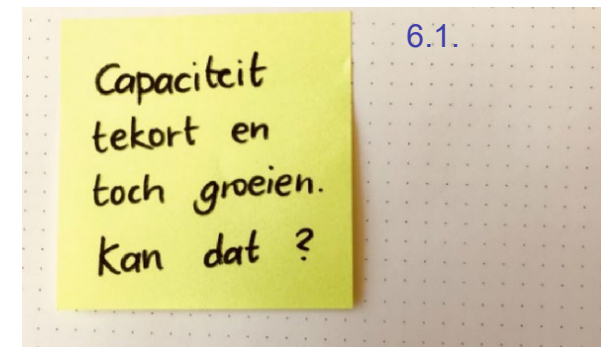 6.1.
Capaciteit
tekort en
toch groeien.
Kan dat ?